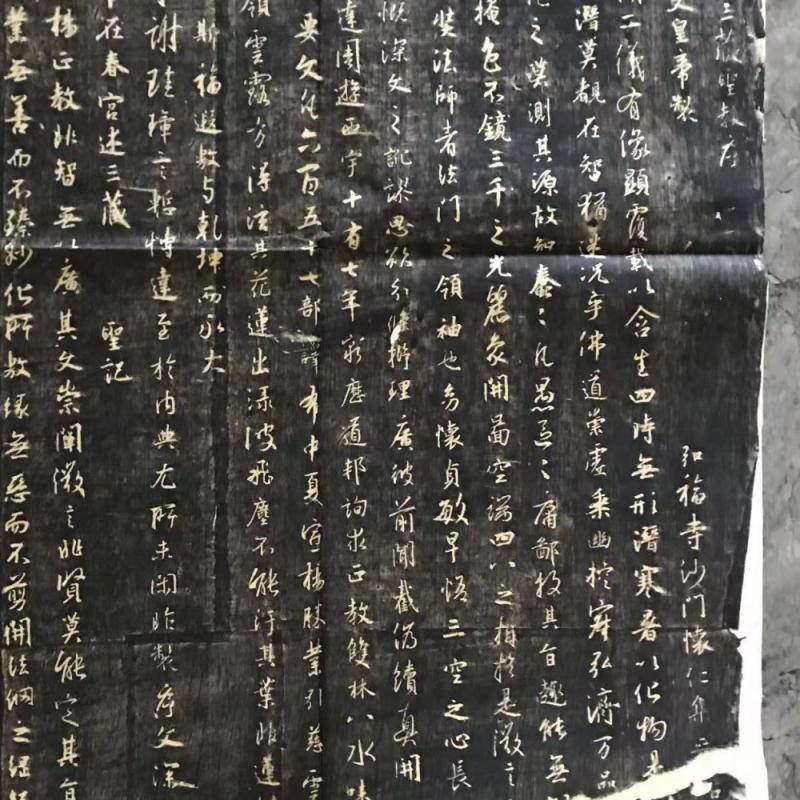 三藏聖教序
文皇帝製
弘福寺沙門懷仁集晉
二儀有像顯覆載以含生四時無形潛寒暑以化物是
潛莫覩在智猶迷況乎佛道崇虛乘幽控寂弘濟万品
之莫測其源故知蠢々凡愚區々庸鄙投其旨趣能無
掩色不鏡三千之光麗象開圖空端四八之相於是微言
奘法師者法門之領袖也幼懷貞敏早悟三空之心長
慨深文之訛謬思欲分條析理廣彼前聞截偽續真開
遠周遊西宇十有七年窮歷道邦詢求正教雙林八水味
要文凡六百五十七部譯布中夏宣揚勝業引慈雲
嶺雲露方得泫其花蓮出淥波飛塵不能汙其葉非蓮
斯福遐敷与乾坤而永大
謝珪璋言慚博達至於內典尤所未閑昨製序文深
在春宮述三藏 聖記
揚正教非智無以廣其文崇闡微言非賢莫能定其旨
業無善而不臻妙化所敷緣無惡而不剪開法網之綱